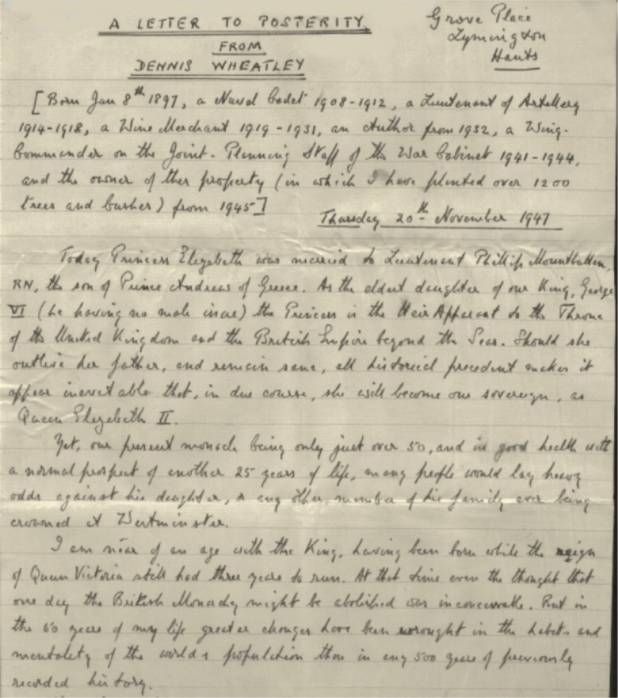 A LETTER TO POSTERITY
FROM
DENNIS WHEATLEY
Grove Place
Lymington
Hants
[Born Jan 8th 1897, a Naval Cadet 1908-1912, a Lieutenant of Artillery
1914-1918, a Wine Merchant 1919-1931, an Author from 1932, a Wing-
Commander on the Joint-Planning Staff of the War Cabinet 1941-1944,
and the owner of this property (in which I have planted over 1200
trees and bushes) from 1945]
Thursday 20th November 1947
Today Princess Elizabeth was married to Lieutenant Phillip Mountbatten,
RN, the son of Prince Andreas of Greece. As the eldest daughter of our King, George
VI (he having no male issue) the Princess is the Heir Apparent to the Throne
of the United Kingdom and the British Empire beyond the Seas. Should she
outlive her father, and remain sane, all historical precedent makes it
appear inevitable that, in due course, she will become our sovereign, as
Queen Elizabeth II.
Yet, our present monarch being only just over 50, and in good health with
a normal prospect of another 25 years of life, many people would lay heavy
odds against his daughter, or any other member of his family ever being
crowned at Westminster.
I am near of an age with the King, having been born while the reign
of Queen Victoria still had three years to run. At that time even the thought that
one day the British Monarchy might be abolished was inconceivable. But in
the 50 years of my life greater changes have been wrought in the habits and
mentality of the world's population than in any 500 years of previously
recorded history.